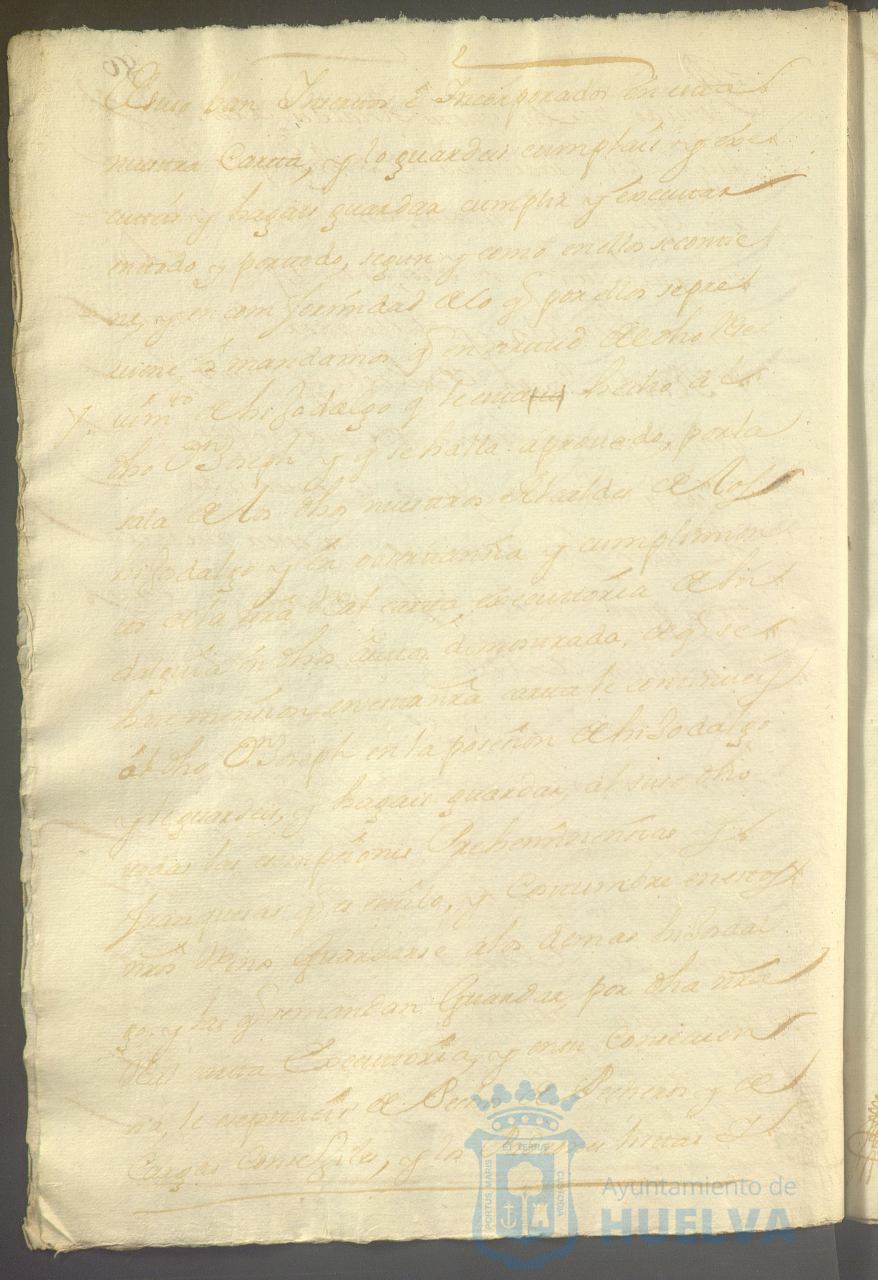 De suso ban Insertos é Incorporados en esta
nuestra Carta, y lo guardeis cumplais y exe
cuteis y hagais guardar cumplir y executar
en todo y por todo, segun y como en ellos se contie
ne, y en comformidad de lo q̃ por ellos se pre
viene, mandamos q̃ en virtud de dho Rec
vim.to de hijodalgo q le está hecho á el
dho Dn Joseph y q̃ se halla aprovado, por la
sala de los dhos nuestros Alcaldes de los
hijosdalgo y en observancia y cumplimien
to de la nrã Real carta executoria de hi
dalguia en dhos Autos demostrada, de q̃ se
hace mencion en esta nrã carta le continueis
ál dho Dn Joseph en la posesion de hijodalgo
y le guardeis, y hagais guardar, al suso dho
todas las esempciones Prehemĩnencias y
franquezas q̃ es estilo, y Costumbre en estos
nrõs Reinos Guardarse a los demas hijosdal
go, y las q̃ se mandan Guardar, por dha nrã
Real carta Executoria, y en su Consecuen
cia, le exemp de Pechos de Pecheros y de
Cargas Consegiles, y los
ET TERRAE
PORTUS MARIS
CUSTODIA
Ayuntamiento de
HUELVA